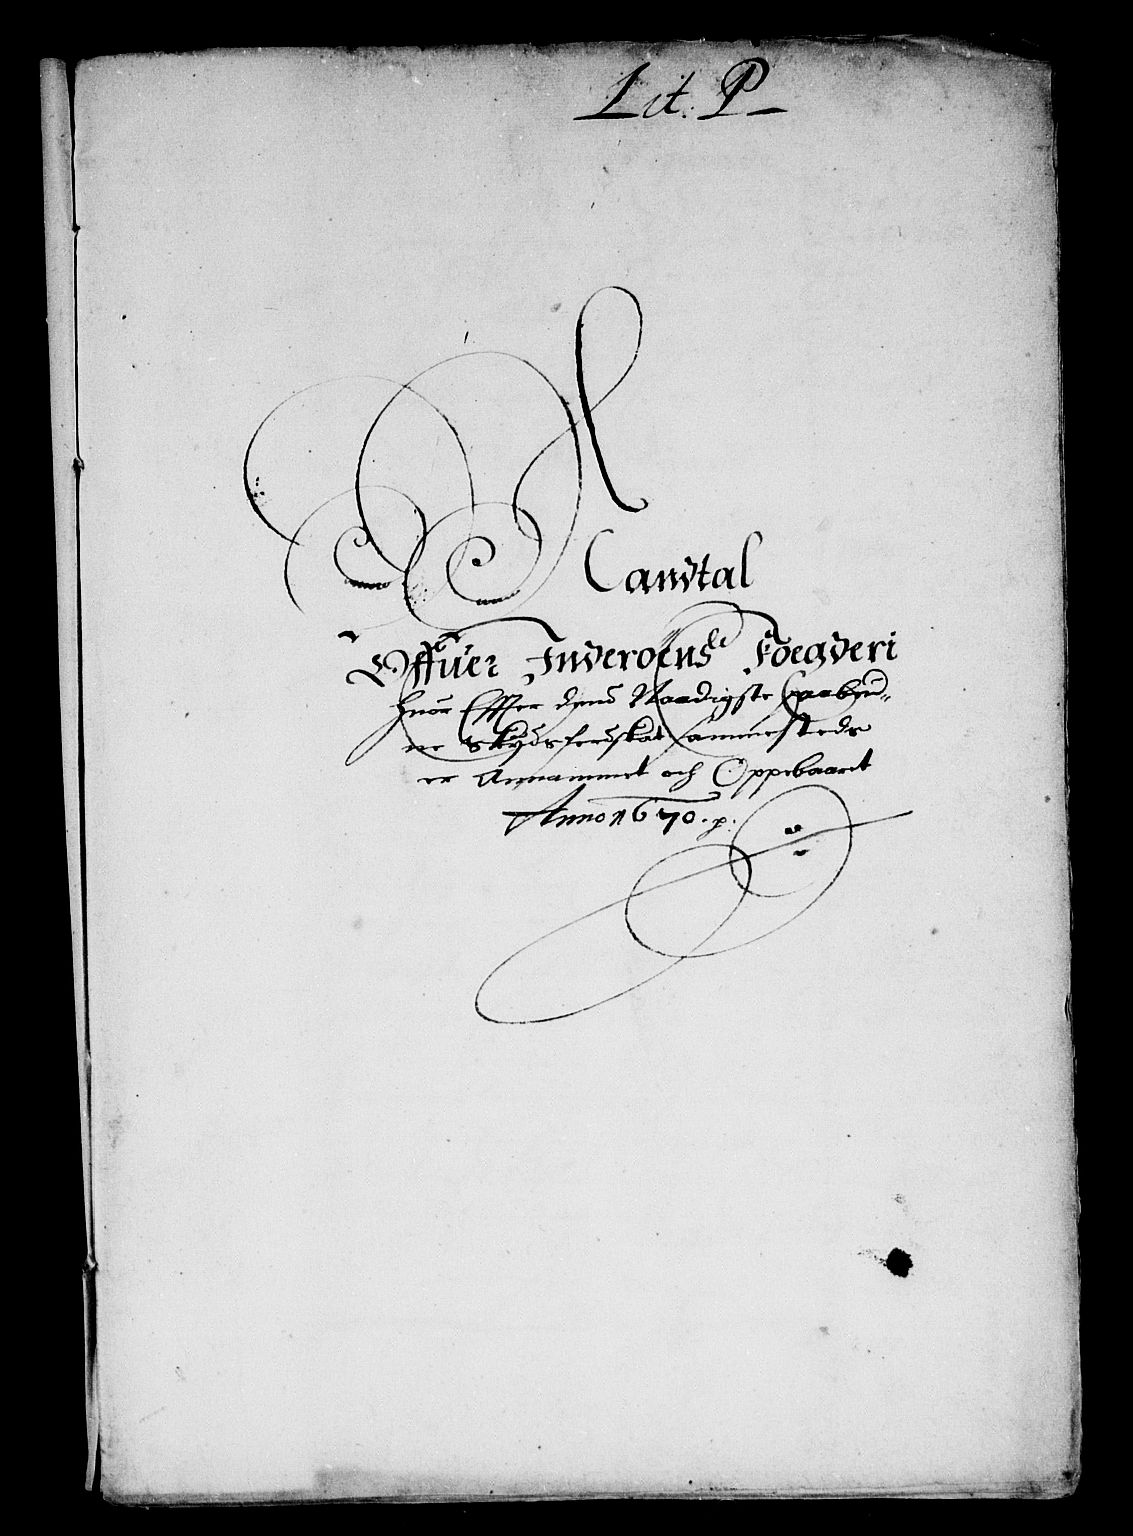 Lit. P
Mandtal
Offuer Inderoens Foegderi
Huor Effter dend Naadigste Paabud-
ne Skydsferdskat sammesteds
er Annammet och Oppebaaret
Anno 1670. p: